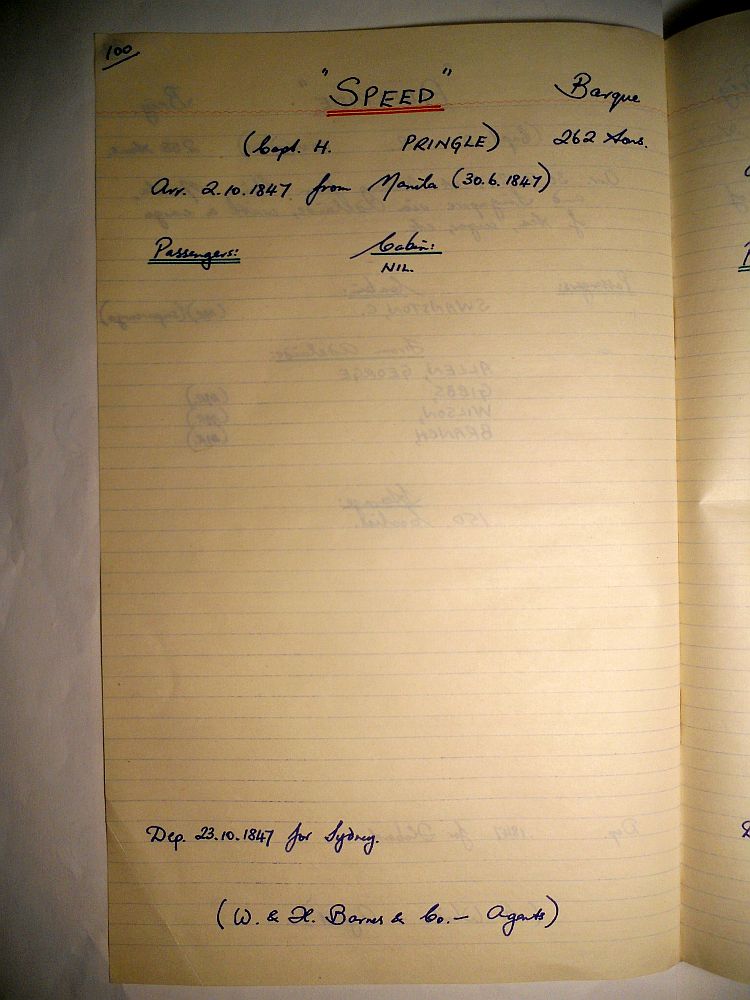 100
"SPEED" Barque
(Capt. H. PRINGLE) 262 tons.
Arr. 2.10.1847 from Manila (30.6.1847)
Passengers: Cabin:
NIL.
Dep. 23.10.1847 for Sydney.
(W. & H. Barnes & Co. — Agents)